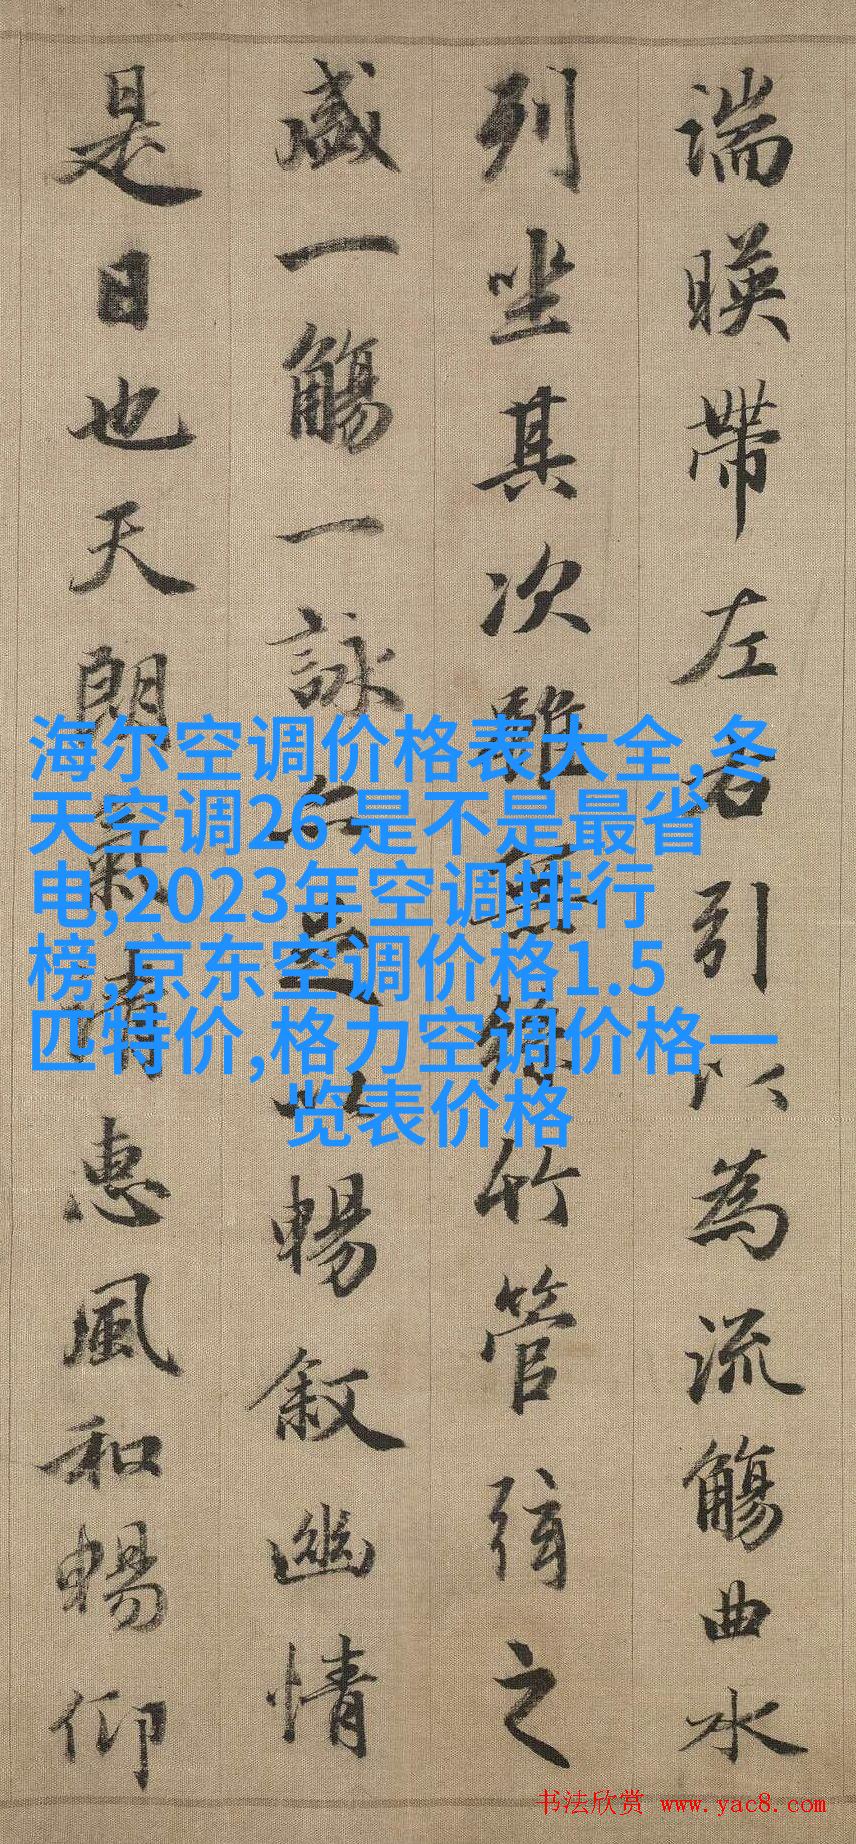 湍暎帶左右引以為流觴曲水
列坐其次雖無絲竹管弦之
盛一觴一詠亦足以暢敘幽情
是日也天朗氣清惠風和暢仰
海尔空调价格表大全,冬
天空调26 是不是最省
电,2023年空调排行
榜,京东空调价格1.5
匹特价,格力空调价格一
览表价格
书法欣赏 www.yac8.com